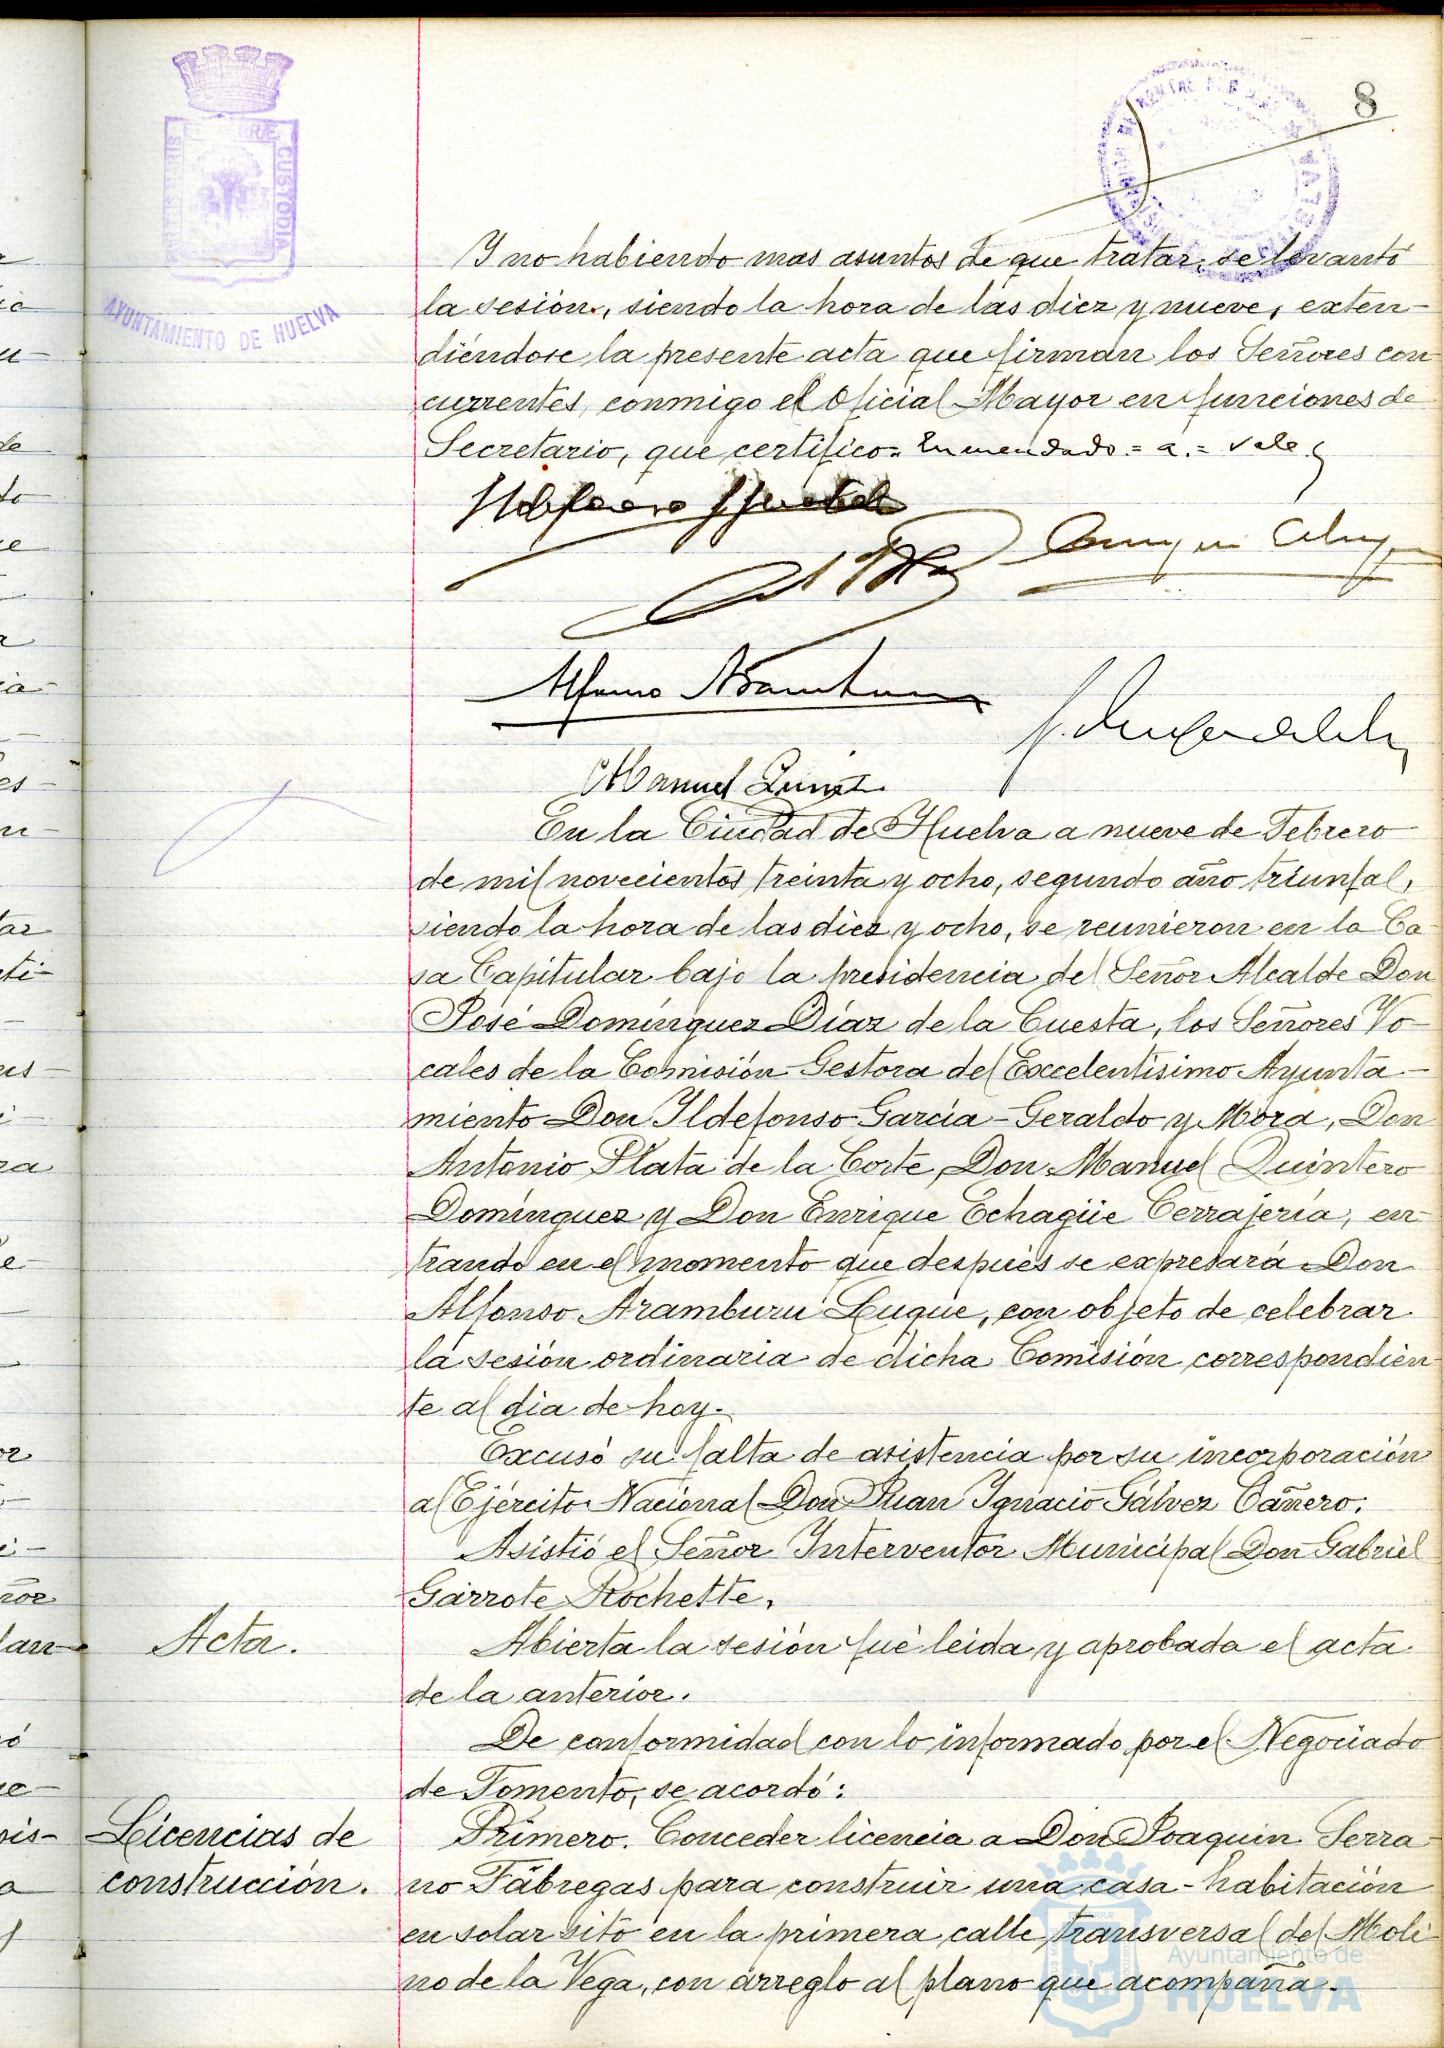 8
PORTUS MARIS ET TERRÆ CUSTODIA
AYUNTAMIENTO DE HUELVA
Y no habiendo mas asuntos de que tratar, se levantó
la sesión, siendo la hora de las diez y nueve, exten-
diéndose la presente acta que firman los Señores con
currentes, conmigo el Oficial Mayor en funciones de
Secretario, que certifico= Enmendado = a. = vale.
Alfonso Aramburu
Manuel Quint
En la Ciudad de Huelva a nueve de Febrero
de mil novecientos treinta y ocho, segundo año triunfal,
siendo la hora de las diez y ocho, se reunieron en la Ca
sa Capitular bajo la presidencia del Señor Alcalde Don
José Domínguez Díaz de la Cuesta, los Señores Vo
cales de la Comisión Gestora del Excelentísimo Ayunta-
miento Don Ildefonso García-Geraldo y Mora, Don
Antonio Plata de la Corte, Don Manuel Quintero
Domínguez y Don Enrique Echagüe Cerrajería, en
trando en el momento que después se expresará Don
Alfonso Aramburu Luque, con objeto de celebrar
la sesión ordinaria de dicha Comisión correspondien
te al dia de hoy.
Excusó su falta de asistencia por su incorporación
al Ejército Nacional Don Juan Ignacio Gálvez Cañero.
Asistió el Señor Interventor Municipal Don Gabriel
Garrote Rochette.
Acta.
Abierta la sesión fué leida y aprobada el acta
de la anterior.
De conformidad con lo informado por el Negociado
de Fomento, se acordó:
Licencias de
construcción.
Primero. Conceder licencia a Don Joaquin Serra
no Fábregas para construir una casa-habitación
en solar sito en la primera calle transversal del Moli
no de la Vega, con arreglo al plano que acompaña.
Ayuntamiento de
HUELVA